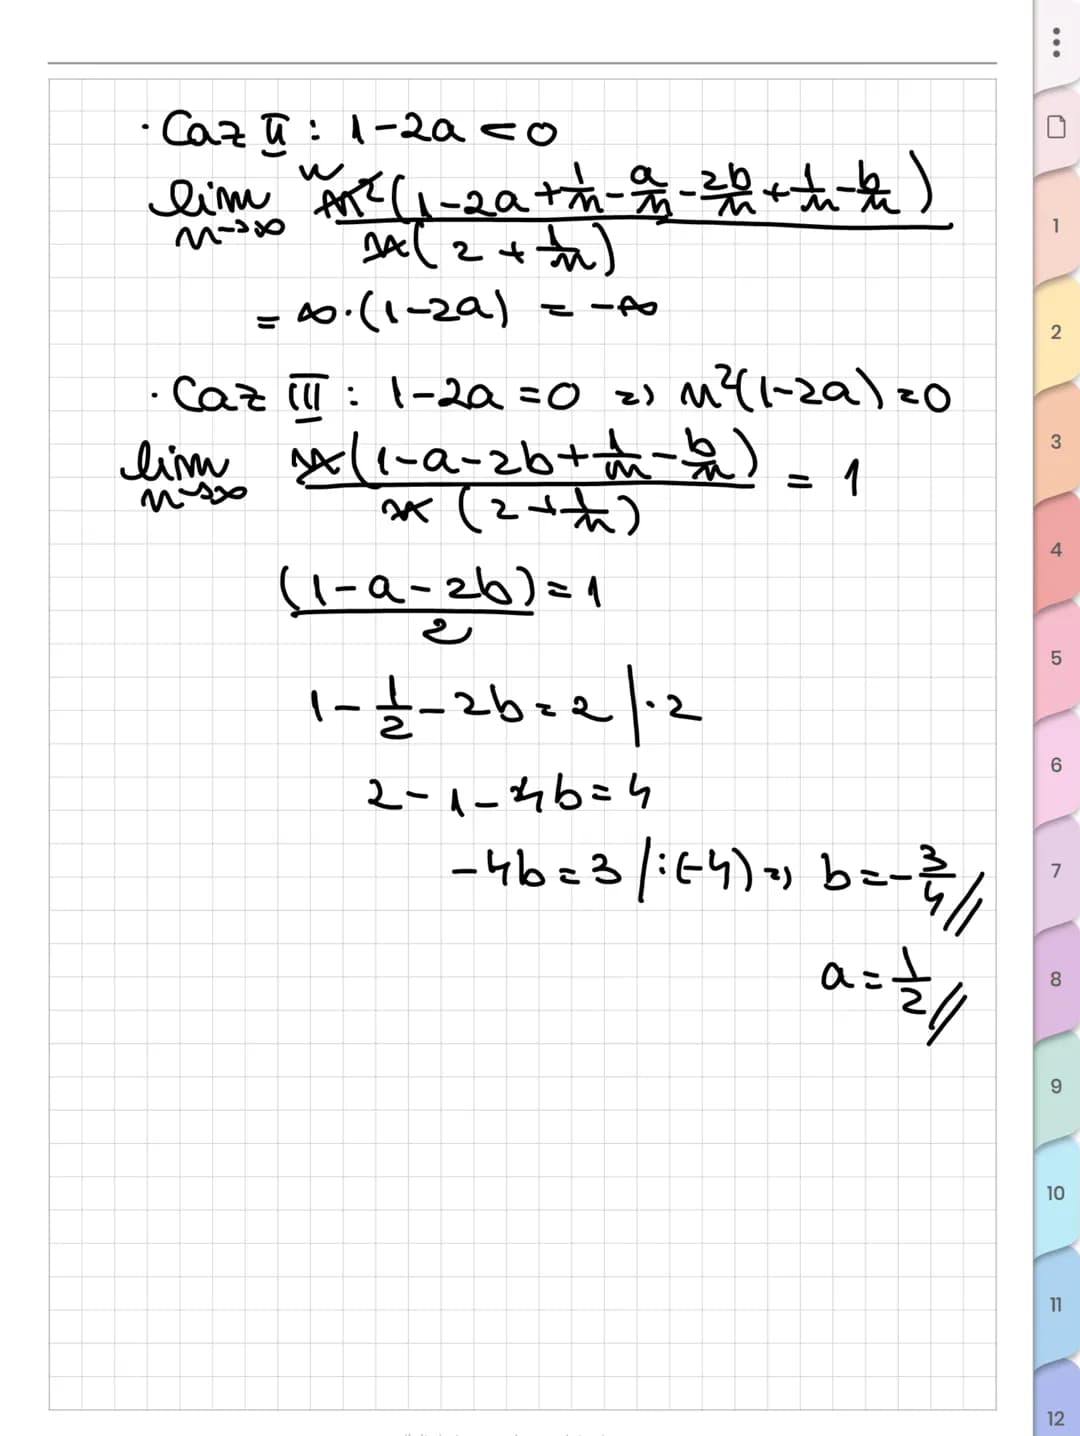 · Caz II : 1-2a <0
lim n→∞ n n²(1-2a+1/n-a/n-2b/n+1/n-b/n) / n(2+1/n)
= ∞·(1-2a) = -∞
· Caz III : 1-2a=0 => n²(1-2a)=0
lim n→∞ n(1-a-2b+1/n-b/n) / n(2+1/n) = 1
(1-a-2b)/2 = 1
1-1/2-2b=2 |·2
2-1-4b=4
-4b=3 |:(-4) => b=-3/4 //
a=1/2 //
1
2
3
4
5
6
7
8
9
10
11
12